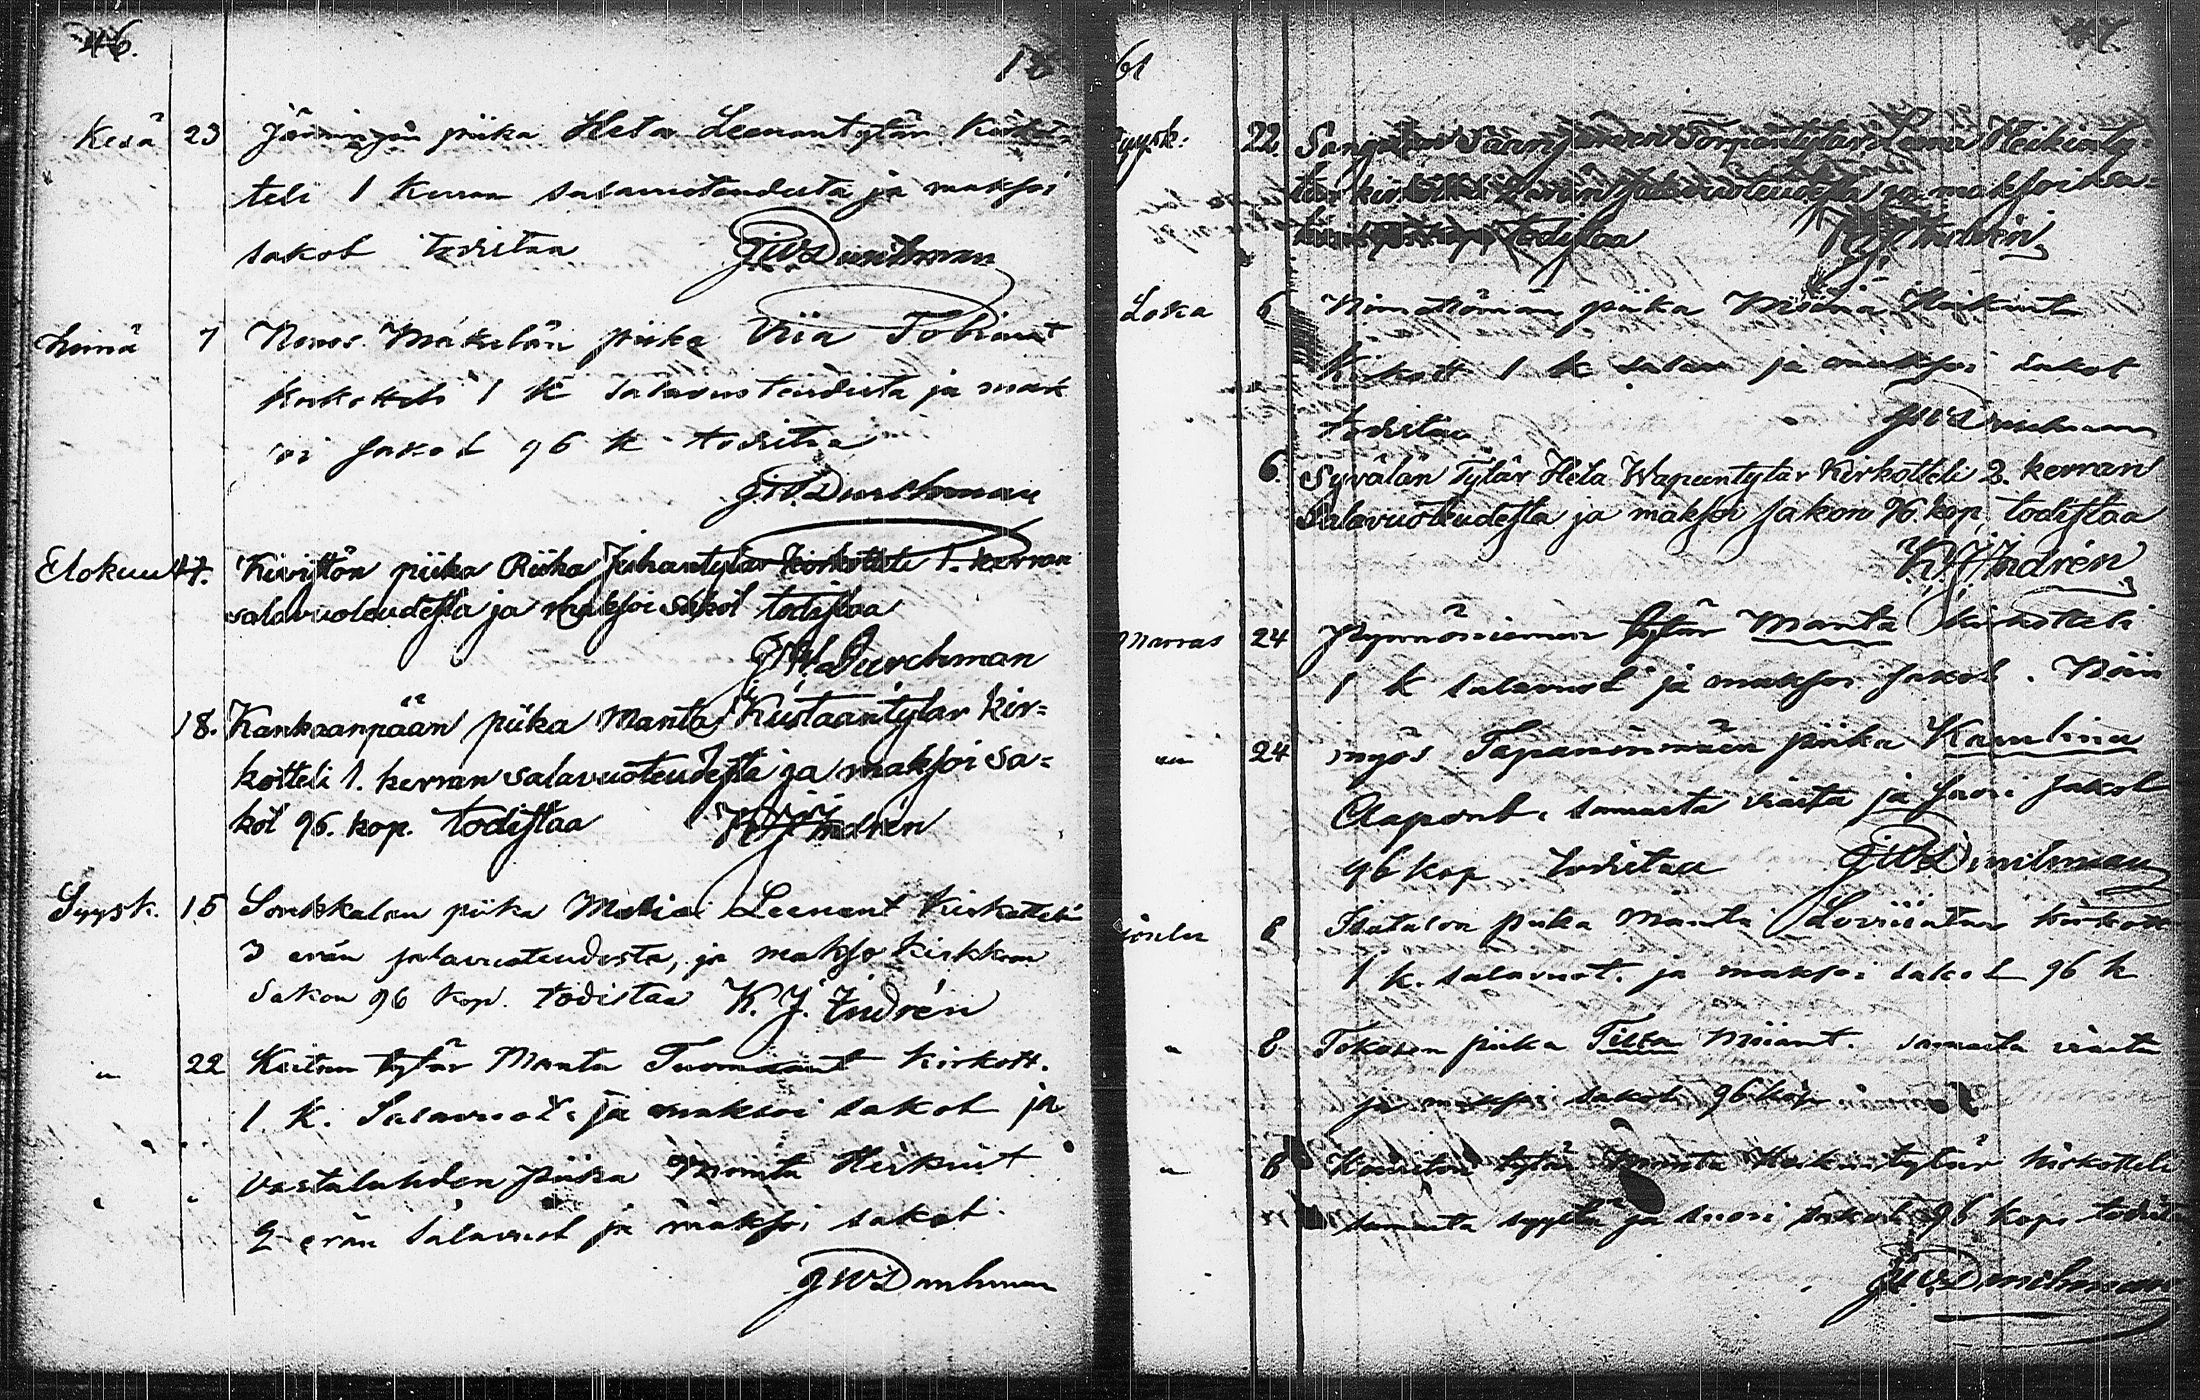 46.
18
Kesä 23 piika Heta Leenantytär Kirkot-
teli 1 kerran salavuoteudesta ja maksoi
sakot todistaa JWDurchman
Heinä 7 Mäkelän piika Viia Tobiant
kirkotteli 1 k salavuoteudesta ja mak
si sakot 96 k todistaa
J.W.Durchman
Elokuu 47. piika Riika Juhantytär kirkotteli 1. kerran
salavuoteudesta ja maksoi sakot todistaa
J.W.Durchman
18. Kankaanpään piika Manta Kustaantytär kir=
kotteli 1. kerran salavuoteudesta ja maksoi sa=
kot 96. kop. todistaa K.J.Andrén
Syysk. 15 piika Maria Leenant kirkotteli
3 erän salavuoteudesta, ja makso kirkkon
sakon 96 kop. todistaa K. J. Andrén
" 22 tytär Manta Tuomaant kirkott.
1. k. Salavuot. ja maksoi sakot ja
Vastaluhden piika Manta Heikint
2 erän salavuot ja maksoi sakot.
JWDurchman
61
Syysk: 22. Leena Heikinty-
tär ja maksoi sa=
todistaa K.J.Andrén
Loka 6 Nimettömän piika Miina Heikint
Kirkott 1 k salav ja maksoi sakot
todistaa JWDurchman
6. Syvälän Tytär Heta Wapuntytär kirkotteli 2. kerran
Salavuoteudesta ja maksoi sakon 96. kop. todistaa
K.J.Andrén
Marras 24 tytär Manta kirkotteli
1 k salavuot ja maksoi sakot. Niin
" 24 myös piika Karolina
Aapont. samasta viasta ja suori sakot
96 kop todistaa JWDurchman
Joulu 8 Iisatalon piika Manta Loviisatar kirkott
1 k. salavuot. ja maksoi sakot 96 k
" 8 piika Miiant. samasta viasta
ja maksoi sakot 96 kop
" 8 tytär Manta Heikintytär kirkotteli
samasta syystä ja suori sakot 96 kop. todista
J.W.Durchman